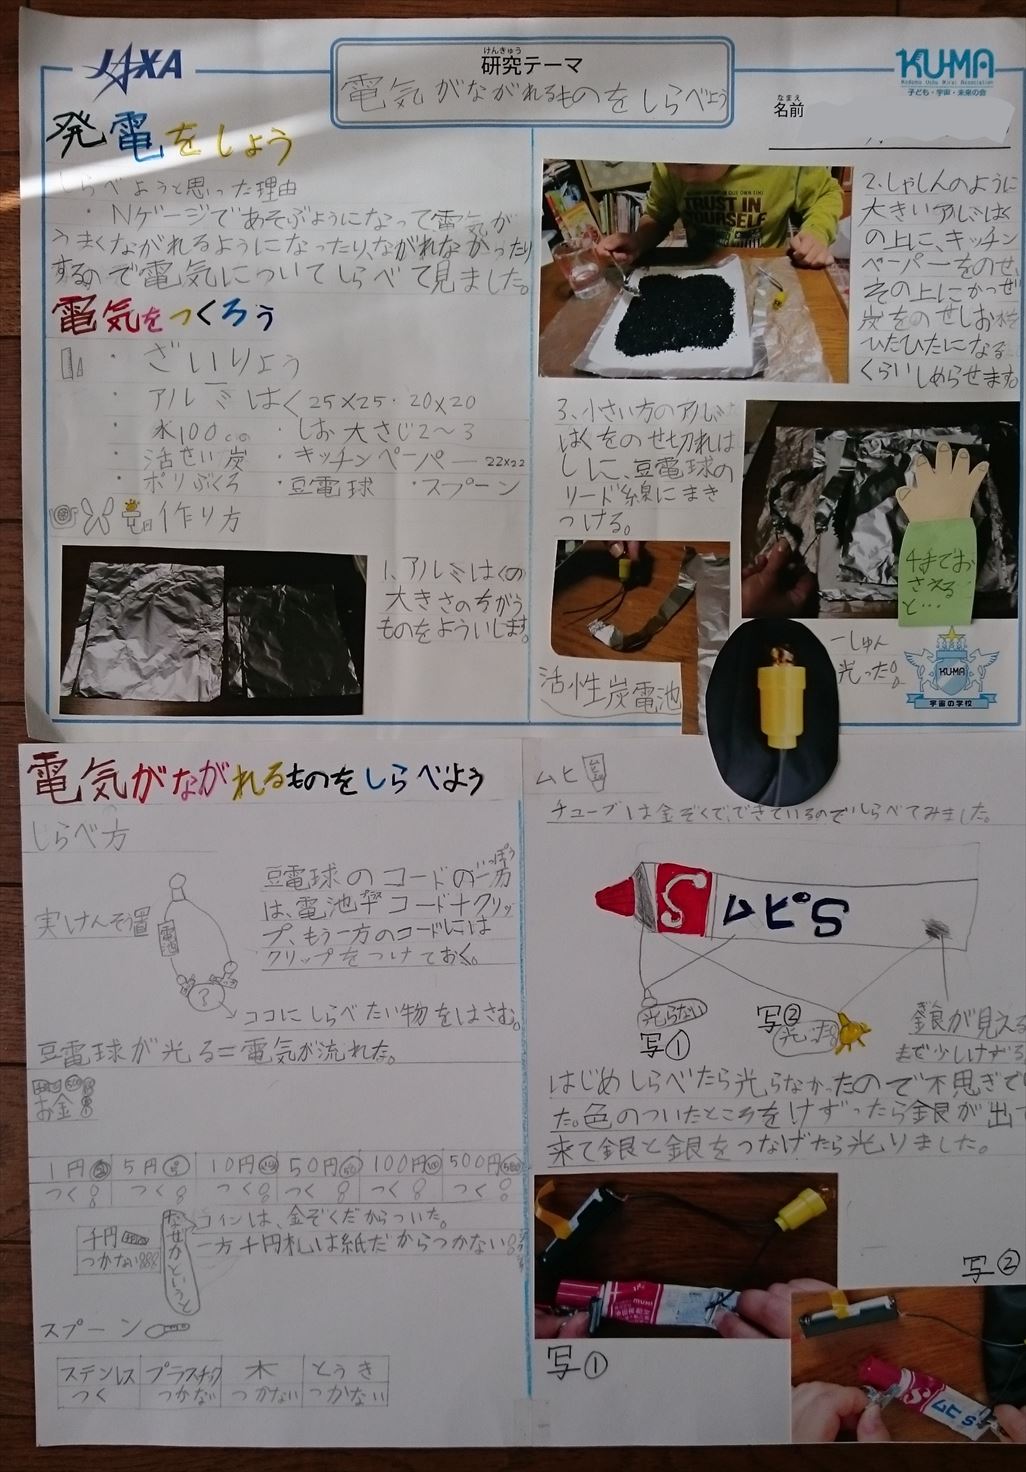 JAXA
けんきゅう
研究テーマ
電気がながれるものをしらべよう
KU-MA
Kodomo Uchu Mirai Association
子ども・宇宙・未来の会
なまえ
名前
発電をしよう
しらべようと思った理由
・Nゲージであそぶようになって電気が
うまくながれるようになったり、ながれなかったり
するので電気についてしらべて見ました。
電気をつくろう
・ざいりょう
・アルミはく25×25・20×20
・水100cc ・しお大さじ2〜3
・活せい炭 ・キッチンペーパー22×22
・ポリぶくろ ・豆電球 ・スプーン
作り方
1、アルミはくの
大きさのちがう
ものをよういします。
TRUST IN
YOURSELF
2、しゃしんのように
大きいアルミはく
の上に、キッチン
ペーパーをのせ、
その上にかっせい
炭をのせしお水を
ひたひたになる
くらいしめらせます。
3、小さい方のアルミ
はくをのせ切れは
しに、豆電球の
リード線にまき
つける。
4手でお
さえる
と…
活性炭電池
一しゅん
光った!!
KU-MA
宇宙の学校
電気がながれるものをしらべよう
しらべ方
実けんそう置
電池
?
豆電球のコードの一方
いっぽう
は、電池+コード+クリッ
プ、もう一方のコードには
クリップをつけておく。
ココにしらべたい物をはさむ。
豆電球が光る=電気が流れた。
お金
1円 5円 10円 50円 100円 500円
つく つく つく つく つく つく
千円
つかない
なぜかというと
コインは、金ぞくだからついた。
一方千円札は紙だからつかない
スプーン
ステンレス プラスチック 木 とうき
つく つかない つかない つかない
ムヒ
チューブは金ぞくでできているのでしらべてみました。
S
ムヒS
光らない
写①
写②
光った
銀が見える
まで少しけずる
はじめしらべたら光らなかったので不思ぎでし
た。色のついたところをけずったら銀が出て
来て銀と銀をつなげたら光りました。
写①
写②
ムヒS